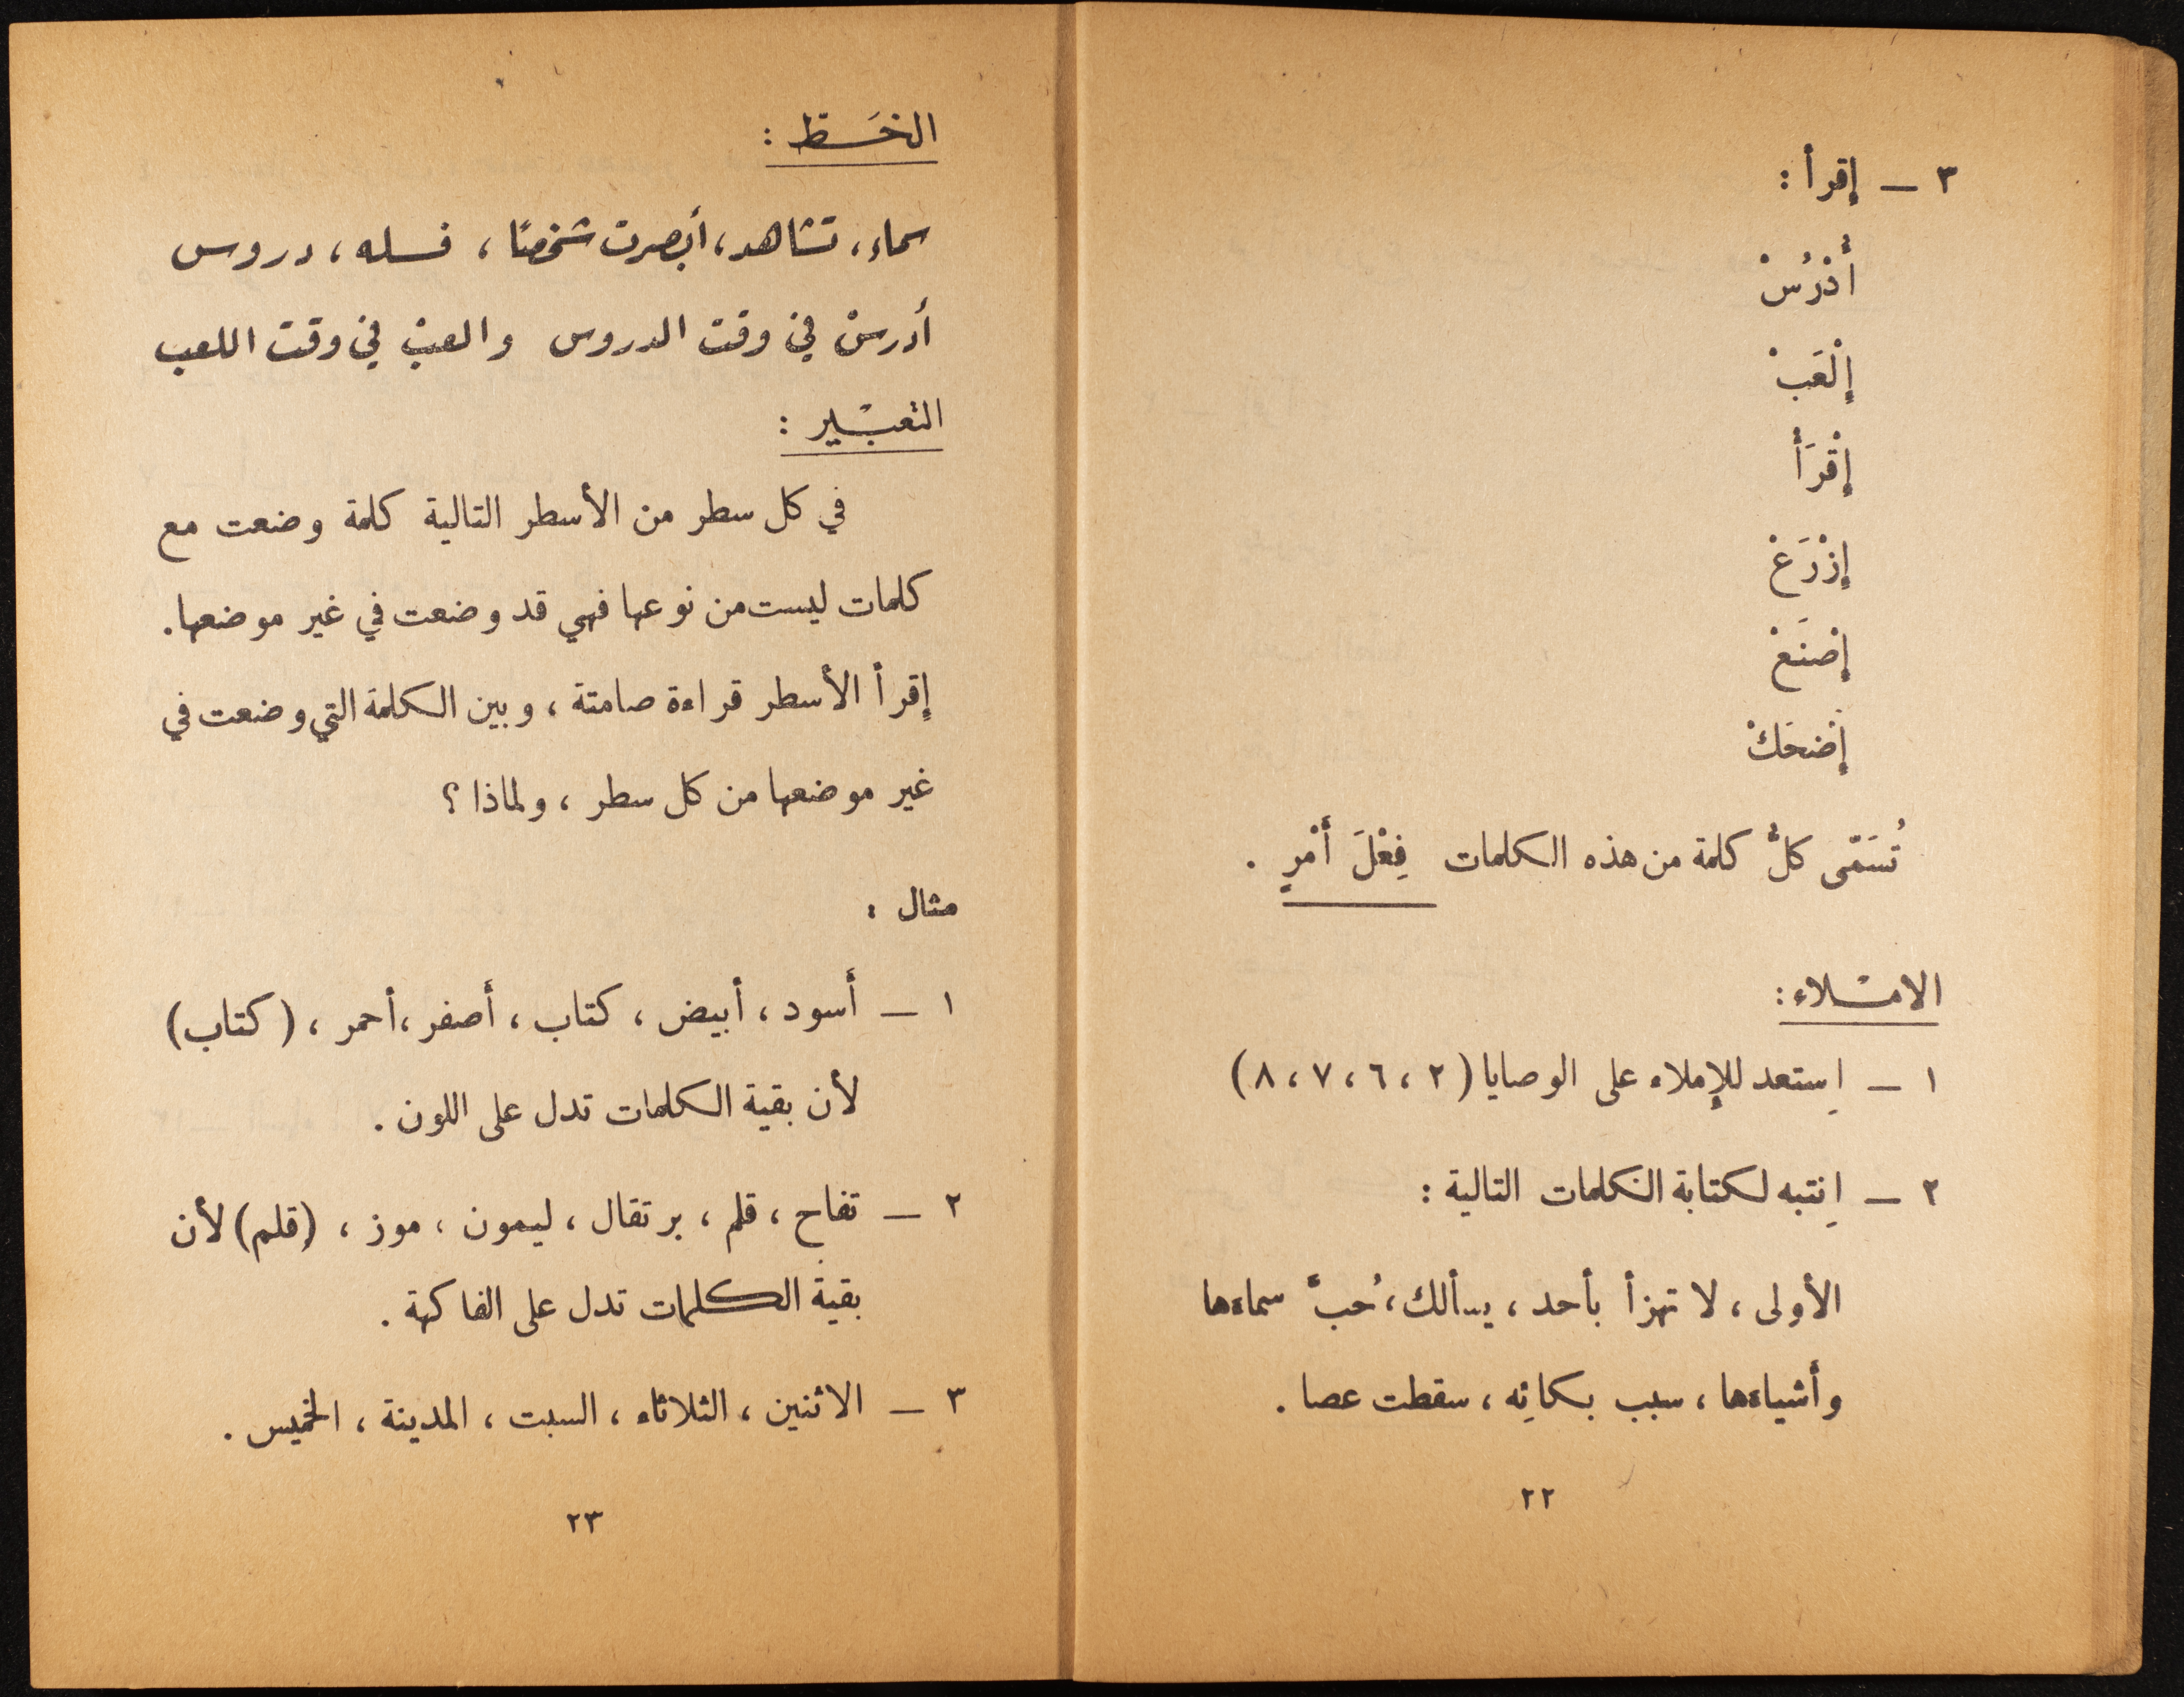 ٣ ــ إقرأ :
أُدْرُسْ
إِلْعَبْ
إِقْرَأْ
إِزْرَعْ
إِصْنَعْ
إِضْحَكْ
تُسَمّى كلُّ كلمة من هذه الكلمات فِعْلَ أَمْرٍ .
الامـلاء :
١ ــ اِستعد للإملاء على الوصايا (٢ ، ٦ ، ٧ ، ٨)
٢ ــ اِنتبه لكتابة الكلمات التالية :
الأولى ، لا تهزأ بأحد ، يسألك ، حُبّ سماءها
وأشياءها ، سبب بكائِه ، سقطت عصا .
٢٢
الخَـط :
سماء ، تشاهد ، أبصرت شخصًا ، فسله ، دروس
أدرسْ في وقت الدروس والعبْ في وقت اللعب
التعبـير :
في كل سطر من الأسطر التالية كلمة وضعت مع
كلمات ليست من نوعها فهي قد وضعت في غير موضعها .
إقرأ الأسطر قراءة صامتة ، وبين الكلمة التي وضعت في
غير موضعها من كل سطر ، ولماذا ؟
مثال :
١ ــ أسود ، أبيض ، كتاب ، أصفر ، أحمر ، (كتاب)
لأن بقية الكلمات تدل على اللون .
٢ ــ تفاح ، قلم ، برتقال ، ليمون ، موز ، (قلم) لأن
بقية الكلمات تدل على الفاكهة .
٣ ــ الاثنين ، الثلاثاء ، السبت ، المدينة ، الخميس .
٢٣